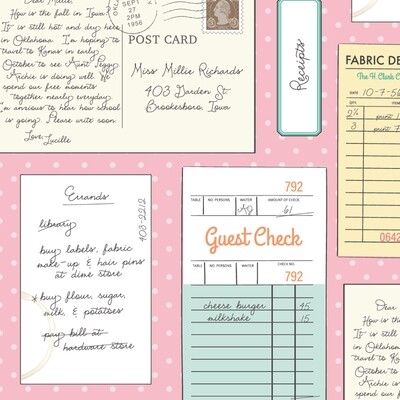 Dear Millie,
How is the fall in Iowa?
It is still hot and dry here
in Oklahoma. I'm hoping to
travel to Kansas in early
October to see Aunt Peggy.
Archie is doing well. We
spend our free moments
together nearly everyday.
I'm anxious to hear how school
is going. Please write soon.
Love, Lucille
SEPT
27
2PM
1956
POST CARD
Miss Millie Richards
403 Garden St.
Brookesboro, Iowa
Receipts
FABRIC DE
The H. Clark C
DATE 10-7-56
QTY.
2½ print
3 print
0642
Errands
408-2212
library
buy labels, fabric
make-up & hair pins
at dime store
*buy flour, sugar,
milk, & potatoes
pay bill at
hardware store
792
TABLE NO. PERSONS WAITER AMOUNT OF CHECK
61
Guest Check
TABLE NO. PERSONS WAITER CHECK NO.
792
cheese burger 45
milkshake 15
Dear
How is the
It is still
in Oklahoma
travel to Kansas
October to
Archie is
spend our f